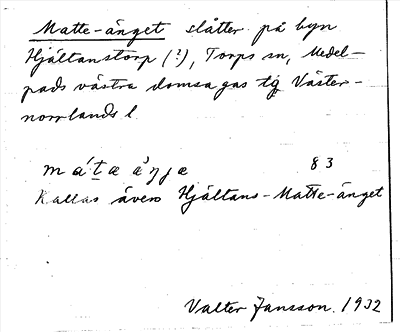 Matte-änget slåtter på byn
Hjältanstorp (?), Torps sn, Medel-
pads västra domsagas tg Väster-
norrlands l.
83
Kallas även Hjältans-Matte-änget
Valter Jansson. 1932